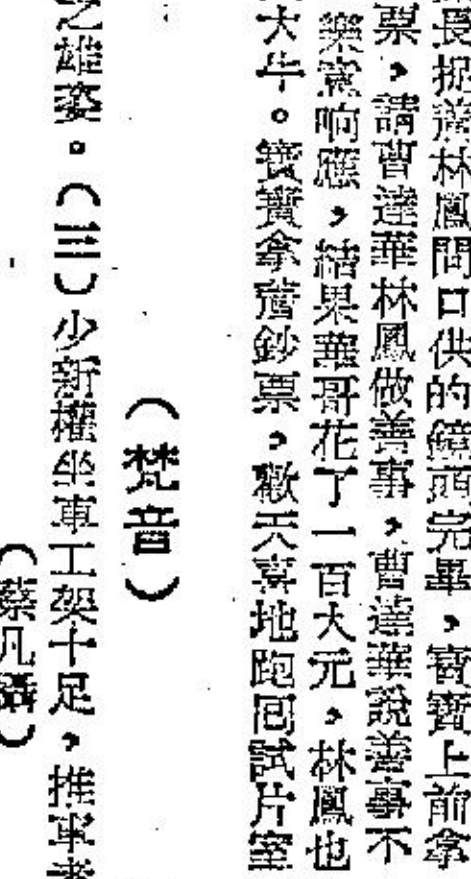 長捉着林鳳問口供的鏡頭完畢，寶寶上前拿
票，請曹達華林鳳做善事，曹達華說善事不
樂意响應，結果華哥花了一百大元，林鳳也
大牛。寶寶拿着鈔票，歡天喜地跑囘試片室
（梵音）
之雄姿。（三）少新權坐車工架十足，推車
（蔡凡攝）